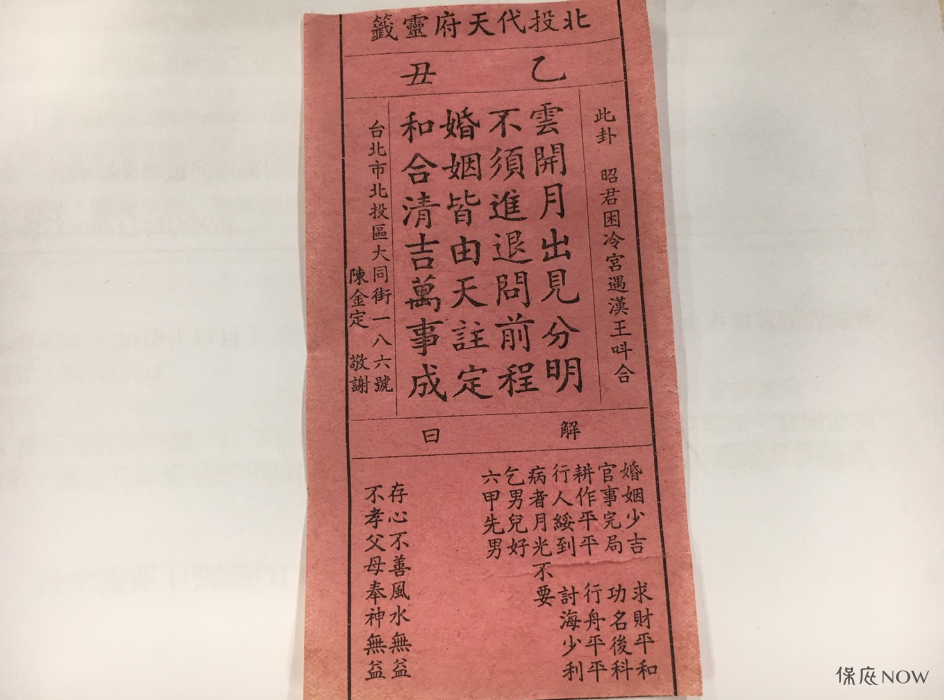 北投代天府靈籤
乙丑
此卦 昭君困冷宮遇漢王呌合
雲開月出見分明
不須進退問前程
婚姻皆由天註定
和合清吉萬事成
台北市北投區大同街一八六號
陳金定 敬謝
解曰
婚姻少吉 求財平和
官事完局 功名後科
耕作平平 行舟平平
行人綏到 討海少利
病者月光不要
乞男兒好
六甲先男
存心不善風水無益
不孝父母奉神無益
保庇NOW